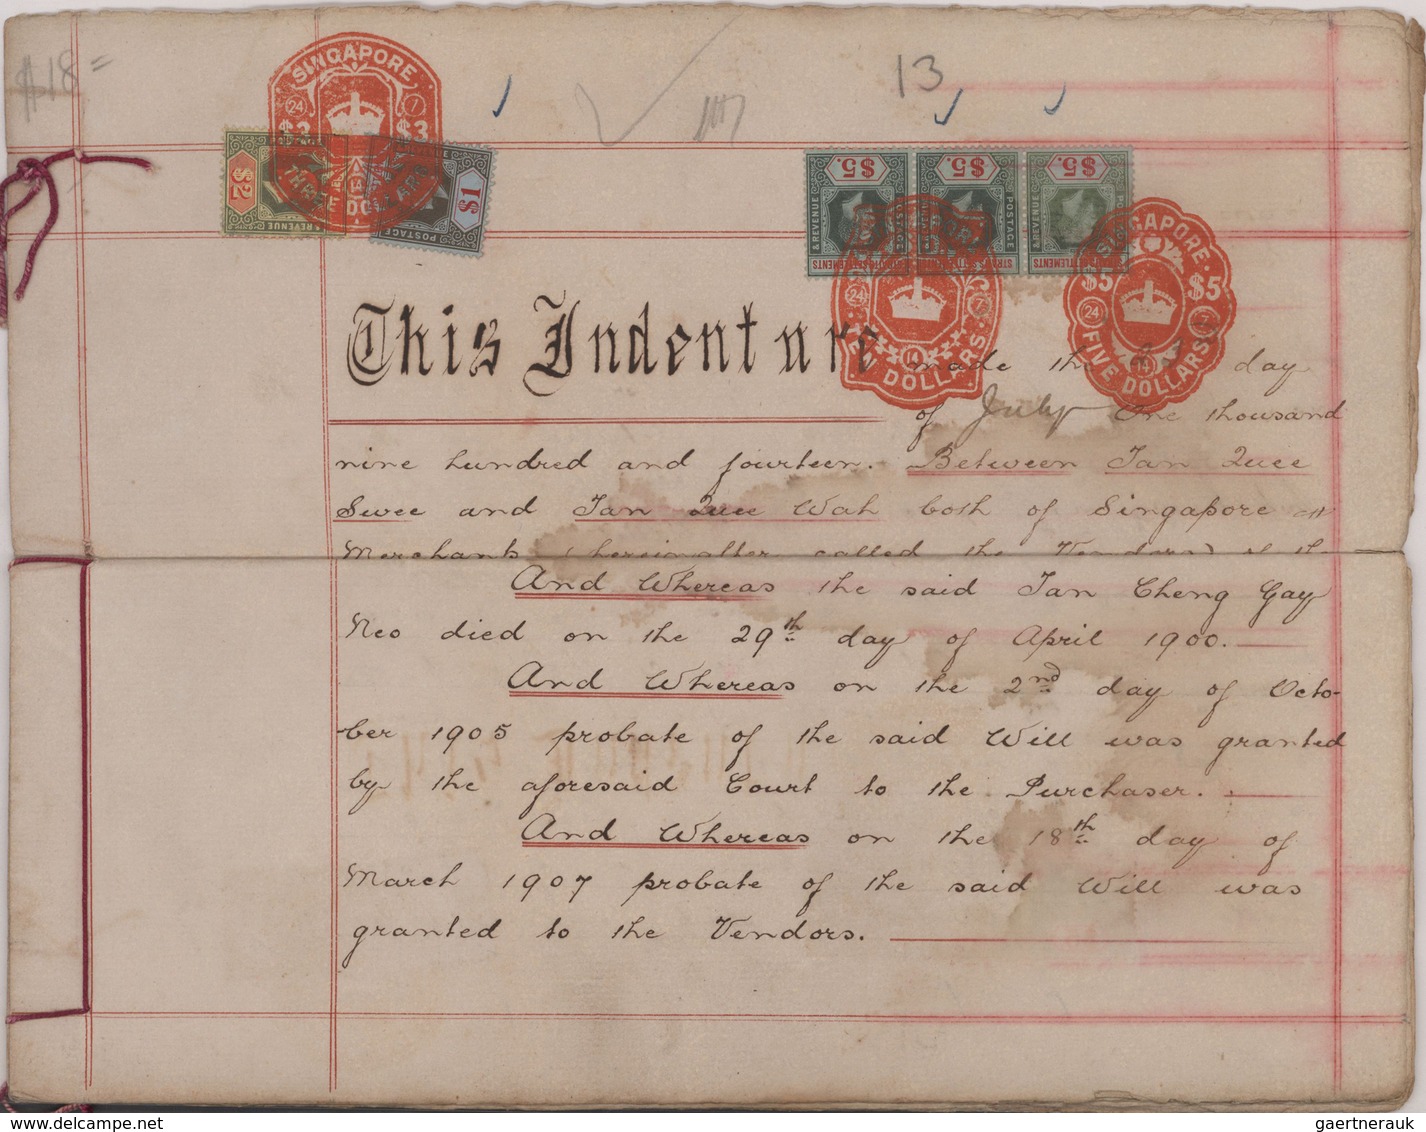 $18=
13
SINGAPORE
24
7
$3 $3
14
THREE DOLLARS
$2
& REVENUE
$1
POSTAGE
$5. $5. $5.
& REVENUE
POSTAGE & REVENUE
POSTAGE & REVENUE
24
7
14
DOLLARS
SINGAPORE
$5 $5
24
7
14
FIVE DOLLARS
This Indenture made the day
of July One thousand
nine hundred and fourteen. Between Tan Quee
Swee and Tan Quee Wah both of Singapore
Merchants (hereinafter called the Vendors) of the
And Whereas the said Tan Cheng Gay
Neo died on the 29th day of April 1900.
And Whereas on the 2nd day of Octo-
ber 1905 probate of the said Will was granted
by the aforesaid Court to the Purchaser.
And Whereas on the 18th day of
March 1907 probate of the said Will was
granted to the Vendors.
www.delcampe.net
gaertnerauk